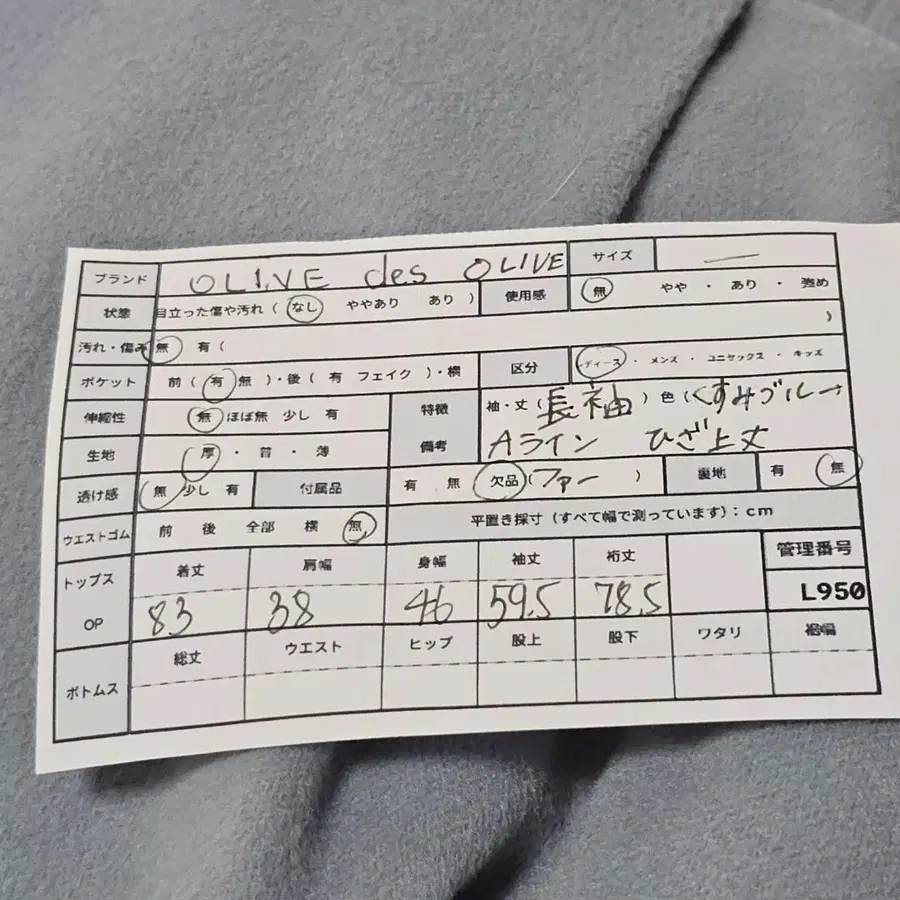 ブランド OLIVE des OLIVE サイズ —
状態 目立った傷や汚れ ( なし ややあり あり ) 使用感 無 やや ・ あり ・ 強め
汚れ・傷み 無 有 ( )
ポケット 前 ( 有 無 )・後 ( 有 フェイク )・横 区分 ディース ・ メンズ ・ ユニセックス ・ キッズ
伸縮性 無 ほぼ無 少し 有 特徴 備考 袖・丈 ( 長袖 ) 色 ( くすみブルー
生地 厚 ・ 普 ・ 薄 Aライン ひざ上丈
透け感 無 少し 有 付属品 有 無 欠品 ( ファー ) 裏地 有 無
ウエストゴム 前 後 全部 横 無 平置き採寸 (すべて幅で測っています) : cm
トップス OP 着丈 肩幅 身幅 袖丈 裄丈 管理番号
83 38 46 59.5 78.5 L950
ボトムス 総丈 ウエスト ヒップ 股上 股下 ワタリ 裾幅